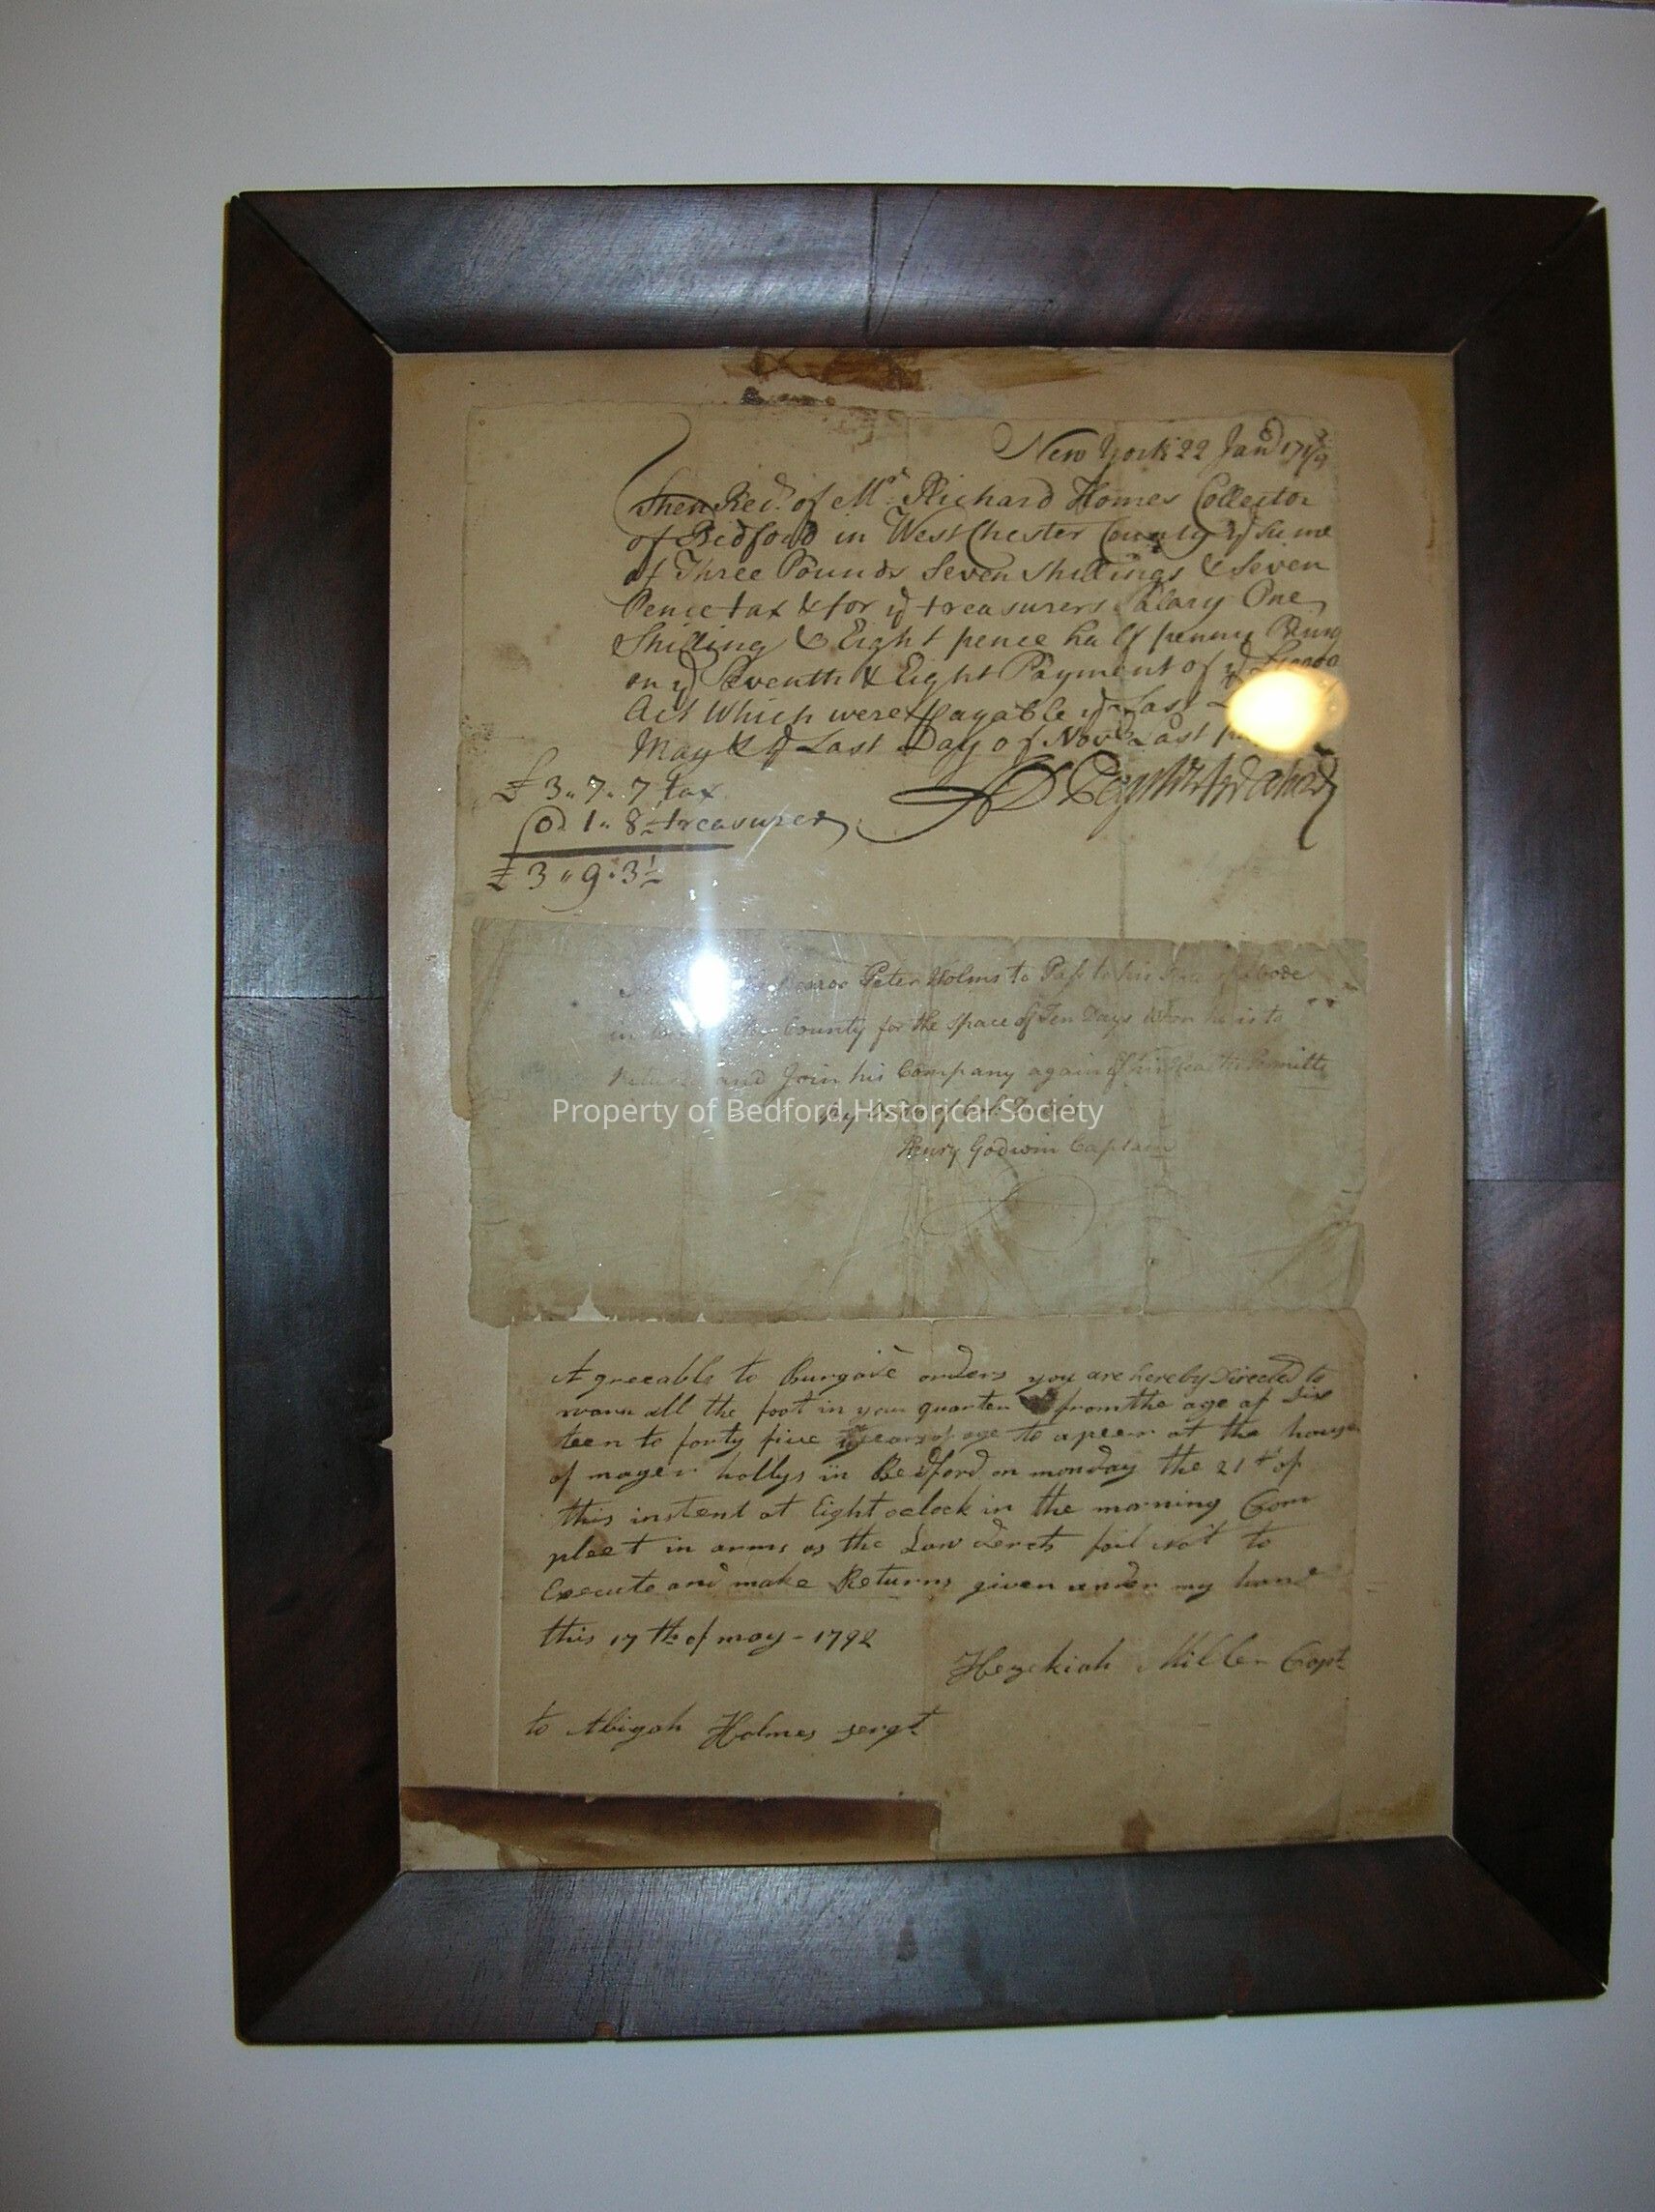 New York 22 Jan 171
Then Rec.d of Mr. Richard Homes Collector
of Bedford in West Chester County ye sume
of Three Pounds Seven shillings & Seven
Pence tax & for ye treasurers salary One
Shilling & Eight pence half penny Being
on ye Seventh & Eight Payment of ye
Act Which were payable ye Last
May & ye Last Day of Novr Last
£ 3 " 7 " 7 tax
1 " 8 ½ treasurer
£ 3 " 9 : 3 ½
Peter Holms to Pass to his Place of abode
in County for the Space of Ten Days When he is to
Return and Join his Company again if his Health Permitts
By order of
Henry Godwin Captain
Property of Bedford Historical Society
Agreeable to orders you are hereby Directed to
warn all the foot in your quarter from the age of Six
teen to forty five years of age to apeer at the house
of mager hollys in Bedford on monday the 21st of
this instent at Eight oclock in the morning Com
pleet in arms as the Law derects fail not to
Execute and make Returns given under my hand
this 17th of may - 1792
Hezekiah Miller Capt
to Abigah Holmes sergt